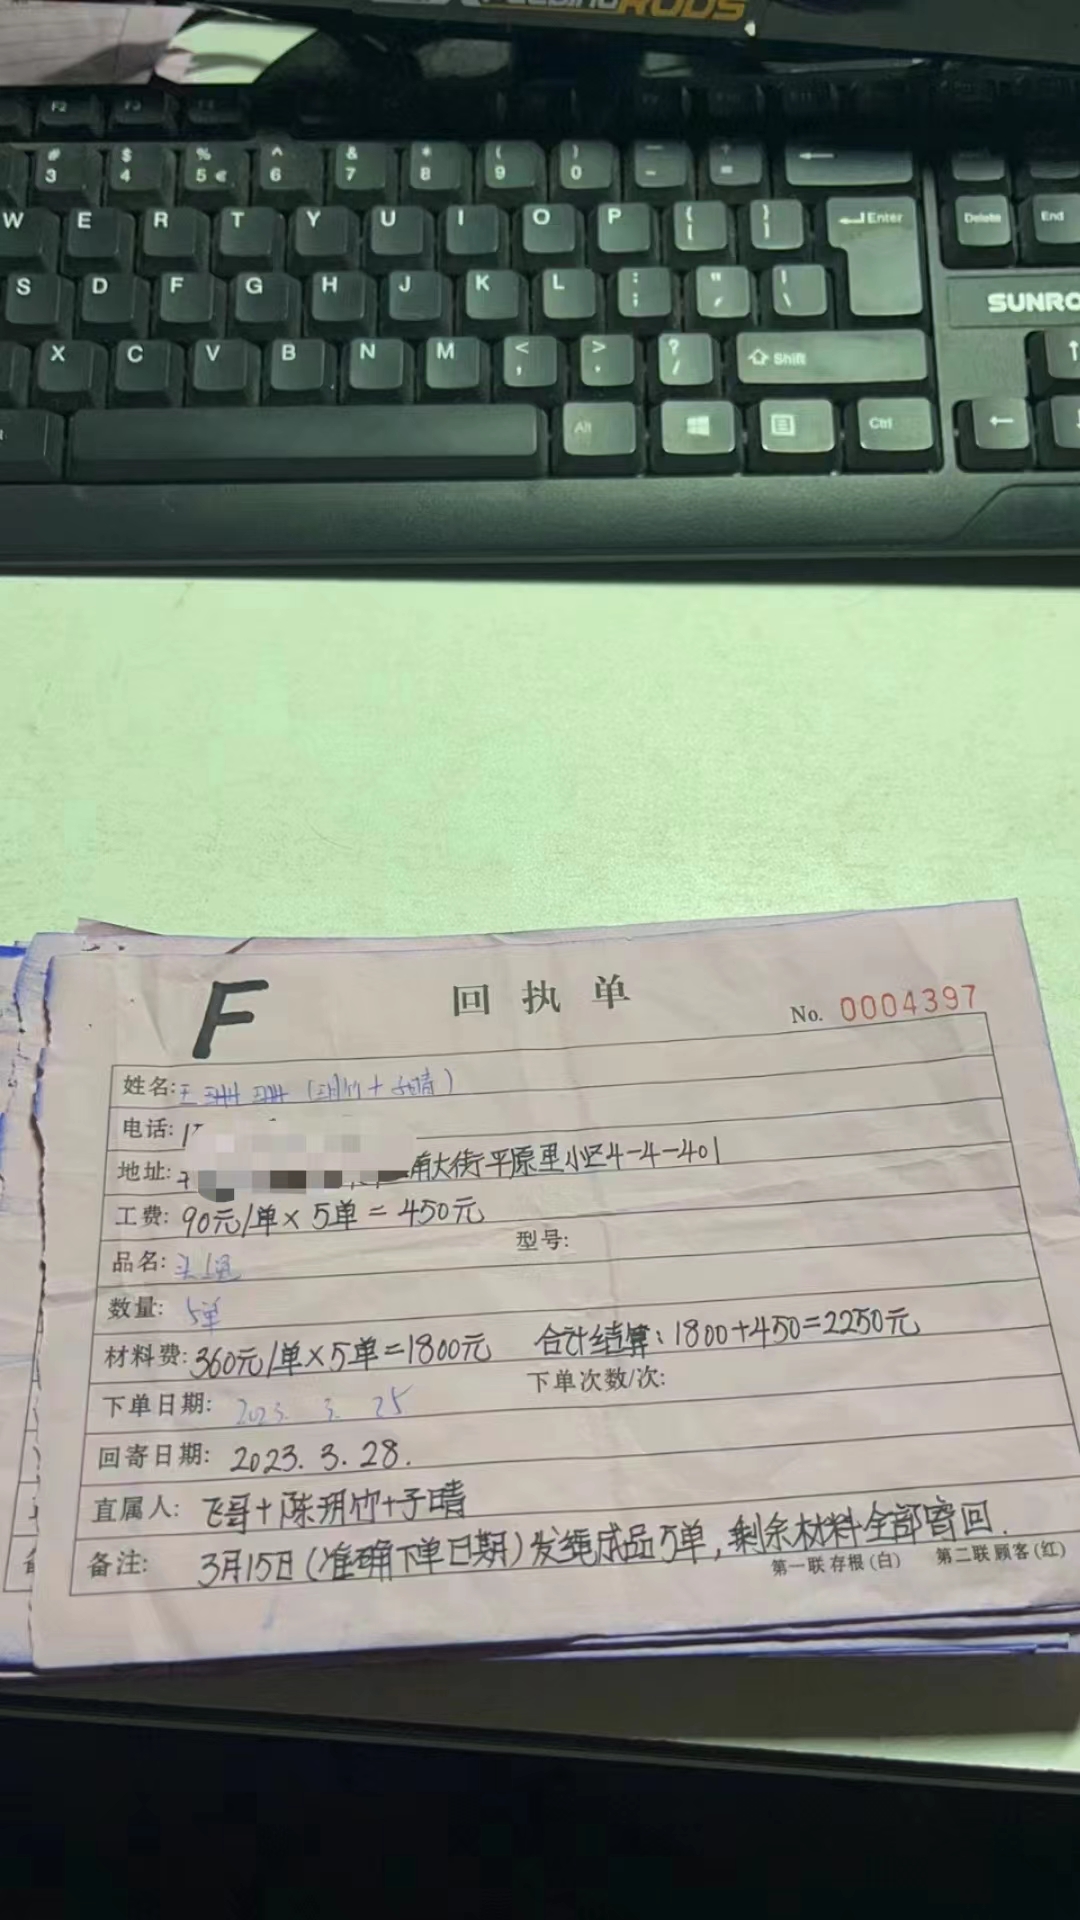 FEEDING RODS
F2 F3 F4
# 3 $ 4 % 5 € ^ 6 & 7 * 8 ( 9 ) 0 — - + =
W E R T Y U I O P { [ } ] Enter Delete End
S D F G H J K L : ; " ' | \ SUNRO
X C V B N M < , > . ? / Shift
Alt Ctrl
F
回执单
No. 0004397
姓名: 王珊珊(玥竹+子晴)
电话: 1
地址: 南大街平原里小区4-4-401
工费: 90元/单×5单=450元
品名: 头绳 型号:
数量: 5单
材料费: 360元/单×5单=1800元 合计结算:1800+450=2250元
下单日期: 2023. 3. 25 下单次数/次:
回寄日期: 2023.3.28.
直属人: 飞哥+陈玥竹+子晴
备注: 3月15日(准确下单日期)发绳成品5单,剩余材料全部寄回.
第一联 存根(白) 第二联 顾客(红)